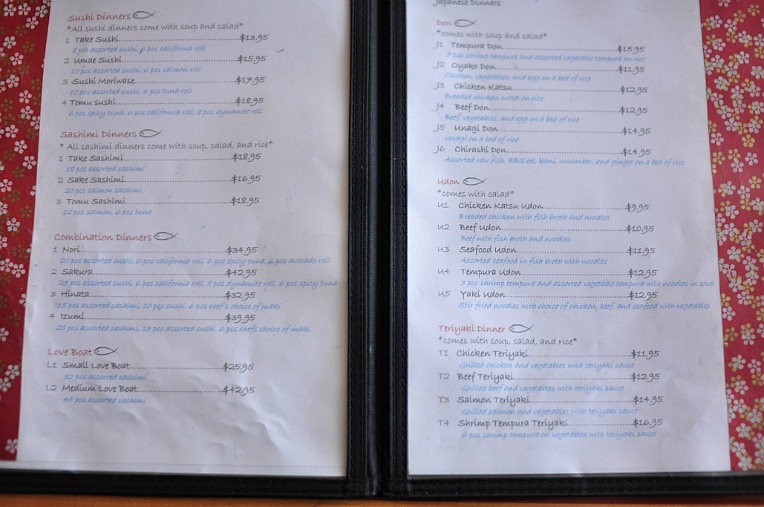 Sushi Dinners
*All sushi dinners come with soup and salad*
1 Take Sushi $13.95
8 pcs assorted sushi, 6 pcs california roll
2 Umae Sushi $15.95
10 pcs assorted sushi, 6 pcs salmon roll
3 Sushi Moriwase $17.95
12 pcs assorted sushi, 6 pcs tuna roll
4 Tomu sushi $18.95
6 pcs spicy tuna, 6 pcs california roll, 8 pcs dynamite roll
Sashimi Dinners
* All sashimi dinners come with soup, salad, and rice*
1 Take Sashimi $18.95
18 pcs assorted sashimi
2 Sake Sashimi $16.95
20 pcs salmon sashimi
3 Tomu Sashimi $18.95
12 pcs salmon, 6 pcs tuna
Combination Dinners
1 Nori $34.95
20 pcs assorted sushi, 6 pcs california roll, 6 pcs spicy tuna, 6 pcs avocado roll
2 Sakura $42.95
25 pcs assorted sushi, 6 pcs california roll, 8 pcs dynamite roll, 6 pcs spicy tuna
3 Hinata $32.95
15 pcs assorted sashimi, 10 pcs sushi, 6 pcs chef's choice of maki
4 Izumi $39.95
20 pcs assorted sashimi, 15 pcs assorted sushi, 6 pcs chef's choice of maki
Love Boat
L1 Small Love Boat $25.95
32 pcs assorted sashimi
L2 Medium Love Boat $42.95
45 pcs assorted sashimi
Japanese Dinners
Don
*comes with soup and salad*
J1 Tempura Don $15.95
5 pcs shrimp tempura and assorted vegetable tempura on rice
J2 Oyako Don $11.95
Chicken, vegetables, and egg on a bed of rice
J3 Chicken Katsu $12.95
Breaded chicken cutlet on rice
J4 Beef Don $12.95
Beef, vegetables, and egg on a bed of rice
J5 Unagi Don $14.95
Unagi on a bed of rice
J6 Chirashi Don $14.95
Assorted raw fish, BBQ eel, kani, cucumber, and ginger on a bed of rice
Udon
*comes with salad*
U1 Chicken Katsu Udon $9.95
Breaded chicken with fish broth and noodles
U2 Beef Udon $10.95
Beef with fish broth and noodles
U3 Seafood Udon $11.95
Assorted seafood in fish broth with noodles
U4 Tempura Udon $12.95
3 pcs shrimp tempura and assorted vegetable tempura with noodles in soup
U5 Yaki Udon $12.95
Stir fried noodles with choice of chicken, beef, and seafood with vegetables
Teriyaki Dinner
*comes with soup, salad, and rice*
T1 Chicken Teriyaki $11.95
Grilled chicken and vegetables with teriyaki sauce
T2 Beef Teriyaki $12.95
Grilled beef and vegetables with teriyaki sauce
T3 Salmon Teriyaki $14.95
Grilled salmon and vegetables with teriyaki sauce
T4 Shrimp Tempura Teriyaki $16.95
6 pcs shrimp tempura on vegetables with teriyaki sauce